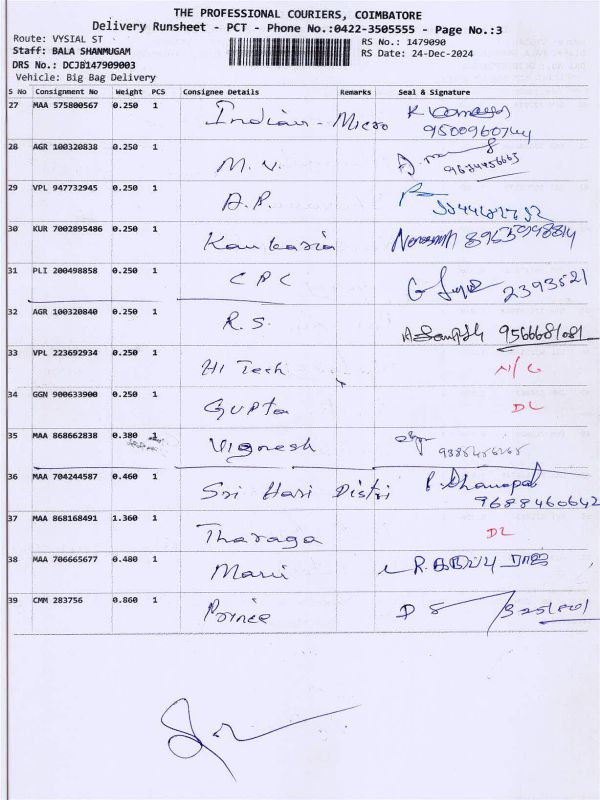 THE PROFESSIONAL COURIERS, COIMBATORE
Delivery Runsheet - PCT - Phone No.:0422-3505555 - Page No.:3
Route: VYSIAL ST RS No.: 1479090
Staff: BALA SHANMUGAM RS Date: 24-Dec-2024
DRS No.: DCJB147909003
Vehicle: Big Bag Delivery
S No Consignment No Weight PCS Consignee Details Remarks Seal & Signature
27 MAA 575800567 0.250 1 Indian - Micro
9500960744
28 AGR 100320838 0.250 1 M. N.
29 VPL 947732945 0.250 1 A.P.
30 KUR 7002895486 0.250 1 Kankaria
31 PLI 200498858 0.250 1 CPC 2393521
32 AGR 100320840 0.250 1 R.S. 9566681081
33 VPL 223692934 0.250 1 Hi Tech N/C
34 GGN 900633900 0.250 1 GUPta DL
35 MAA 868662838 0.380 1 Vignesh
36 MAA 704244587 0.460 1 Sri Hari Distri P. Dhanapal
9688460642
37 MAA 868168491 1.360 1 Tharaga DL
38 MAA 706665677 0.480 1 Marii
39 CMM 283756 0.860 1 Prince